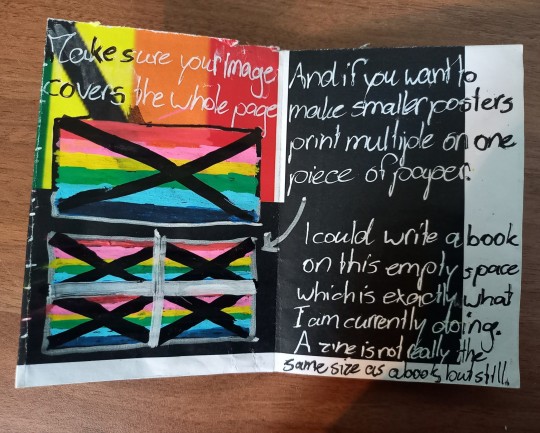 Make sure your image
covers the whole page
And if you want to
make smaller posters
print multiple on one
piece of paper.
I could write a book
on this empty space
which is exactly what
I am currently doing.
A zine is not really the
same size as a book but still.